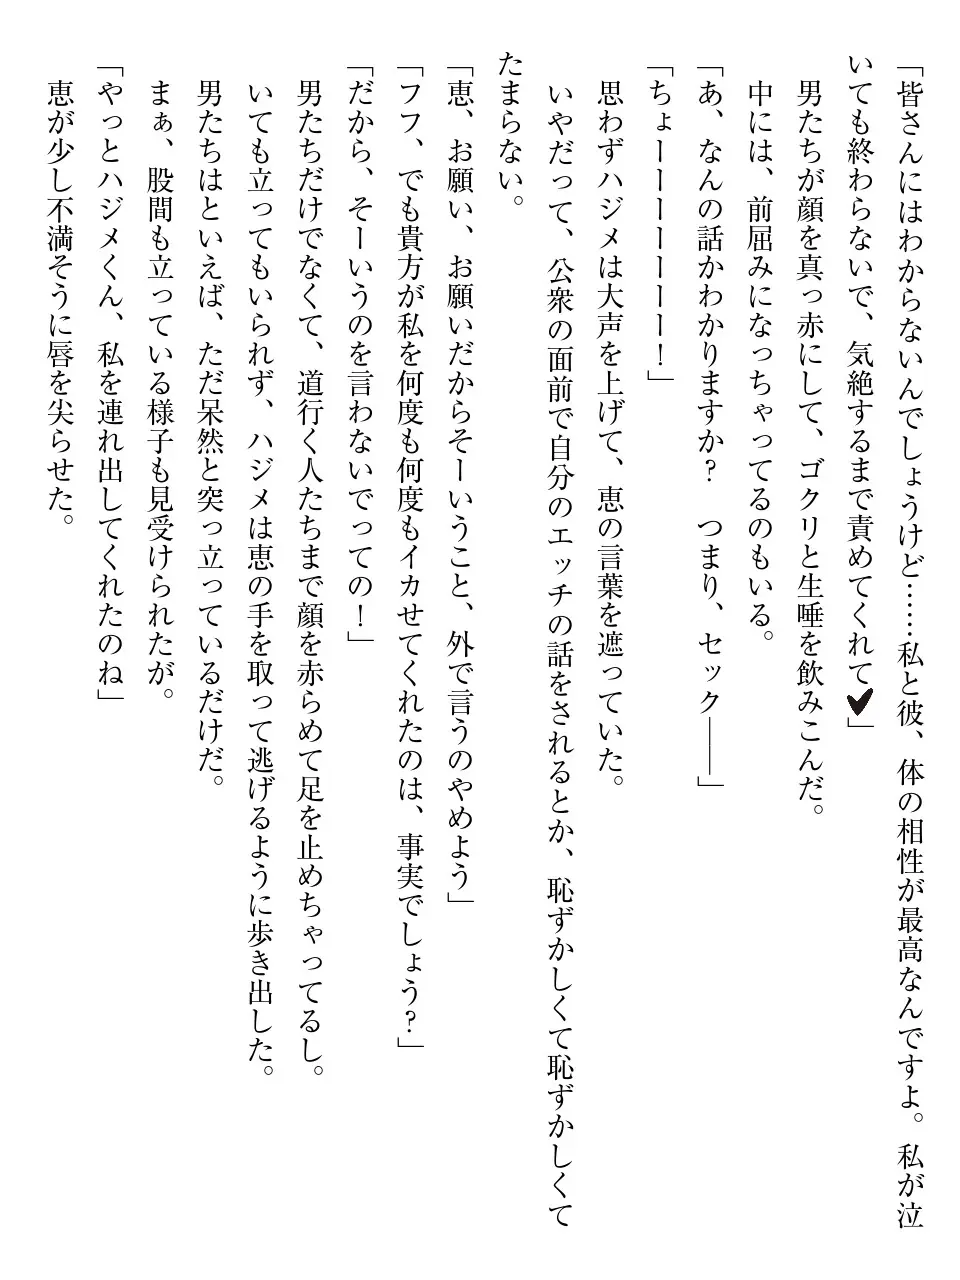 「皆さんにはわからないんでしょうけど……私と彼、体の相性が最高なんですよ。私が泣
いても終わらないで、気絶するまで責めてくれて♥」
男たちが顔を真っ赤にして、ゴクリと生唾を飲みこんだ。
中には、前屈みになっちゃってるのもいる。
「あ、なんの話かわかりますか？　つまり、セック――」
「ちょーーーーーーー！」
思わずハジメは大声を上げて、恵の言葉を遮っていた。
いやだって、公衆の面前で自分のエッチの話をされるとか、恥ずかしくて恥ずかしくて
たまらない。
「恵、お願い、お願いだからそーいうこと、外で言うのやめよう」
「フフ、でも貴方が私を何度も何度もイカせてくれたのは、事実でしょう？」
「だから、そーいうのを言わないでっての！」
男たちだけでなくて、道行く人たちまで顔を赤らめて足を止めちゃってるし。
いても立ってもいられず、ハジメは恵の手を取って逃げるように歩き出した。
男たちはといえば、ただ呆然と突っ立っているだけだ。
まぁ、股間も立っている様子も見受けられたが。
「やっとハジメくん、私を連れ出してくれたのね」
恵が少し不満そうに唇を尖らせた。